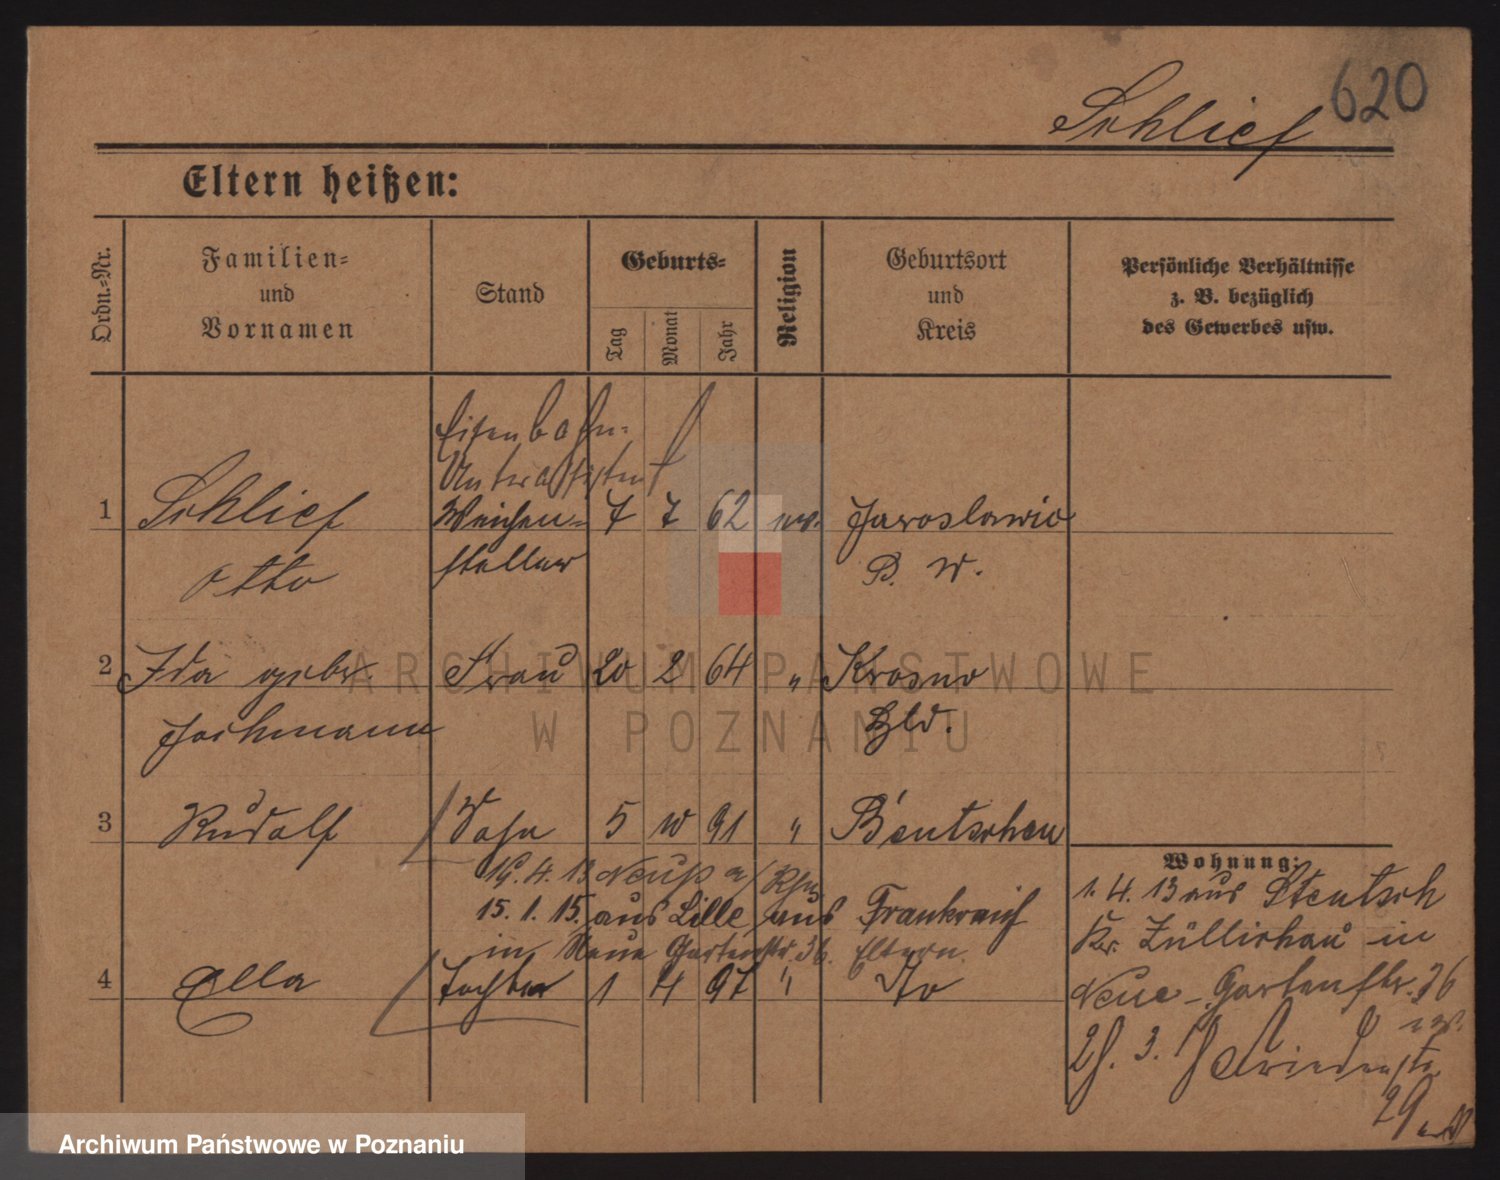 620
Schlief
Eltern heißen:
Ordn.-Nr.
Familien-
und
Vornamen
Stand
Geburts-
Tag
Monat
Jahr
Religion
Geburtsort
und
Kreis
Persönliche Verhältnisse
z. B. bezüglich
des Gewerbes usw.
Eisenbahn-
Unterassistent
1 Schlief Weichen- 7 7 62 ev. Jaroslawie
Otto steller P. W.
2 Ida gebr. Frau 20 2 64 " Krosno
Jochmann
3 Rudolf Sohn 5 10 91 " Bentschen
Wohnung:
4. 13 Neuß a/Rhn
15. 1. 15. aus Lille aus Frankreich
in Neue Gartenstr. 36. Eltern.
4 Ella Tochter 1 4 97 " do
1. 4. 13 aus Stentsch
Kr. Züllichau in
Neue-Gartenstr. 36
28. 3. 18 Friedenstr.
29
ARCHIWUM PAŃSTWOWE
W POZNANIU
Archiwum Państwowe w Poznaniu